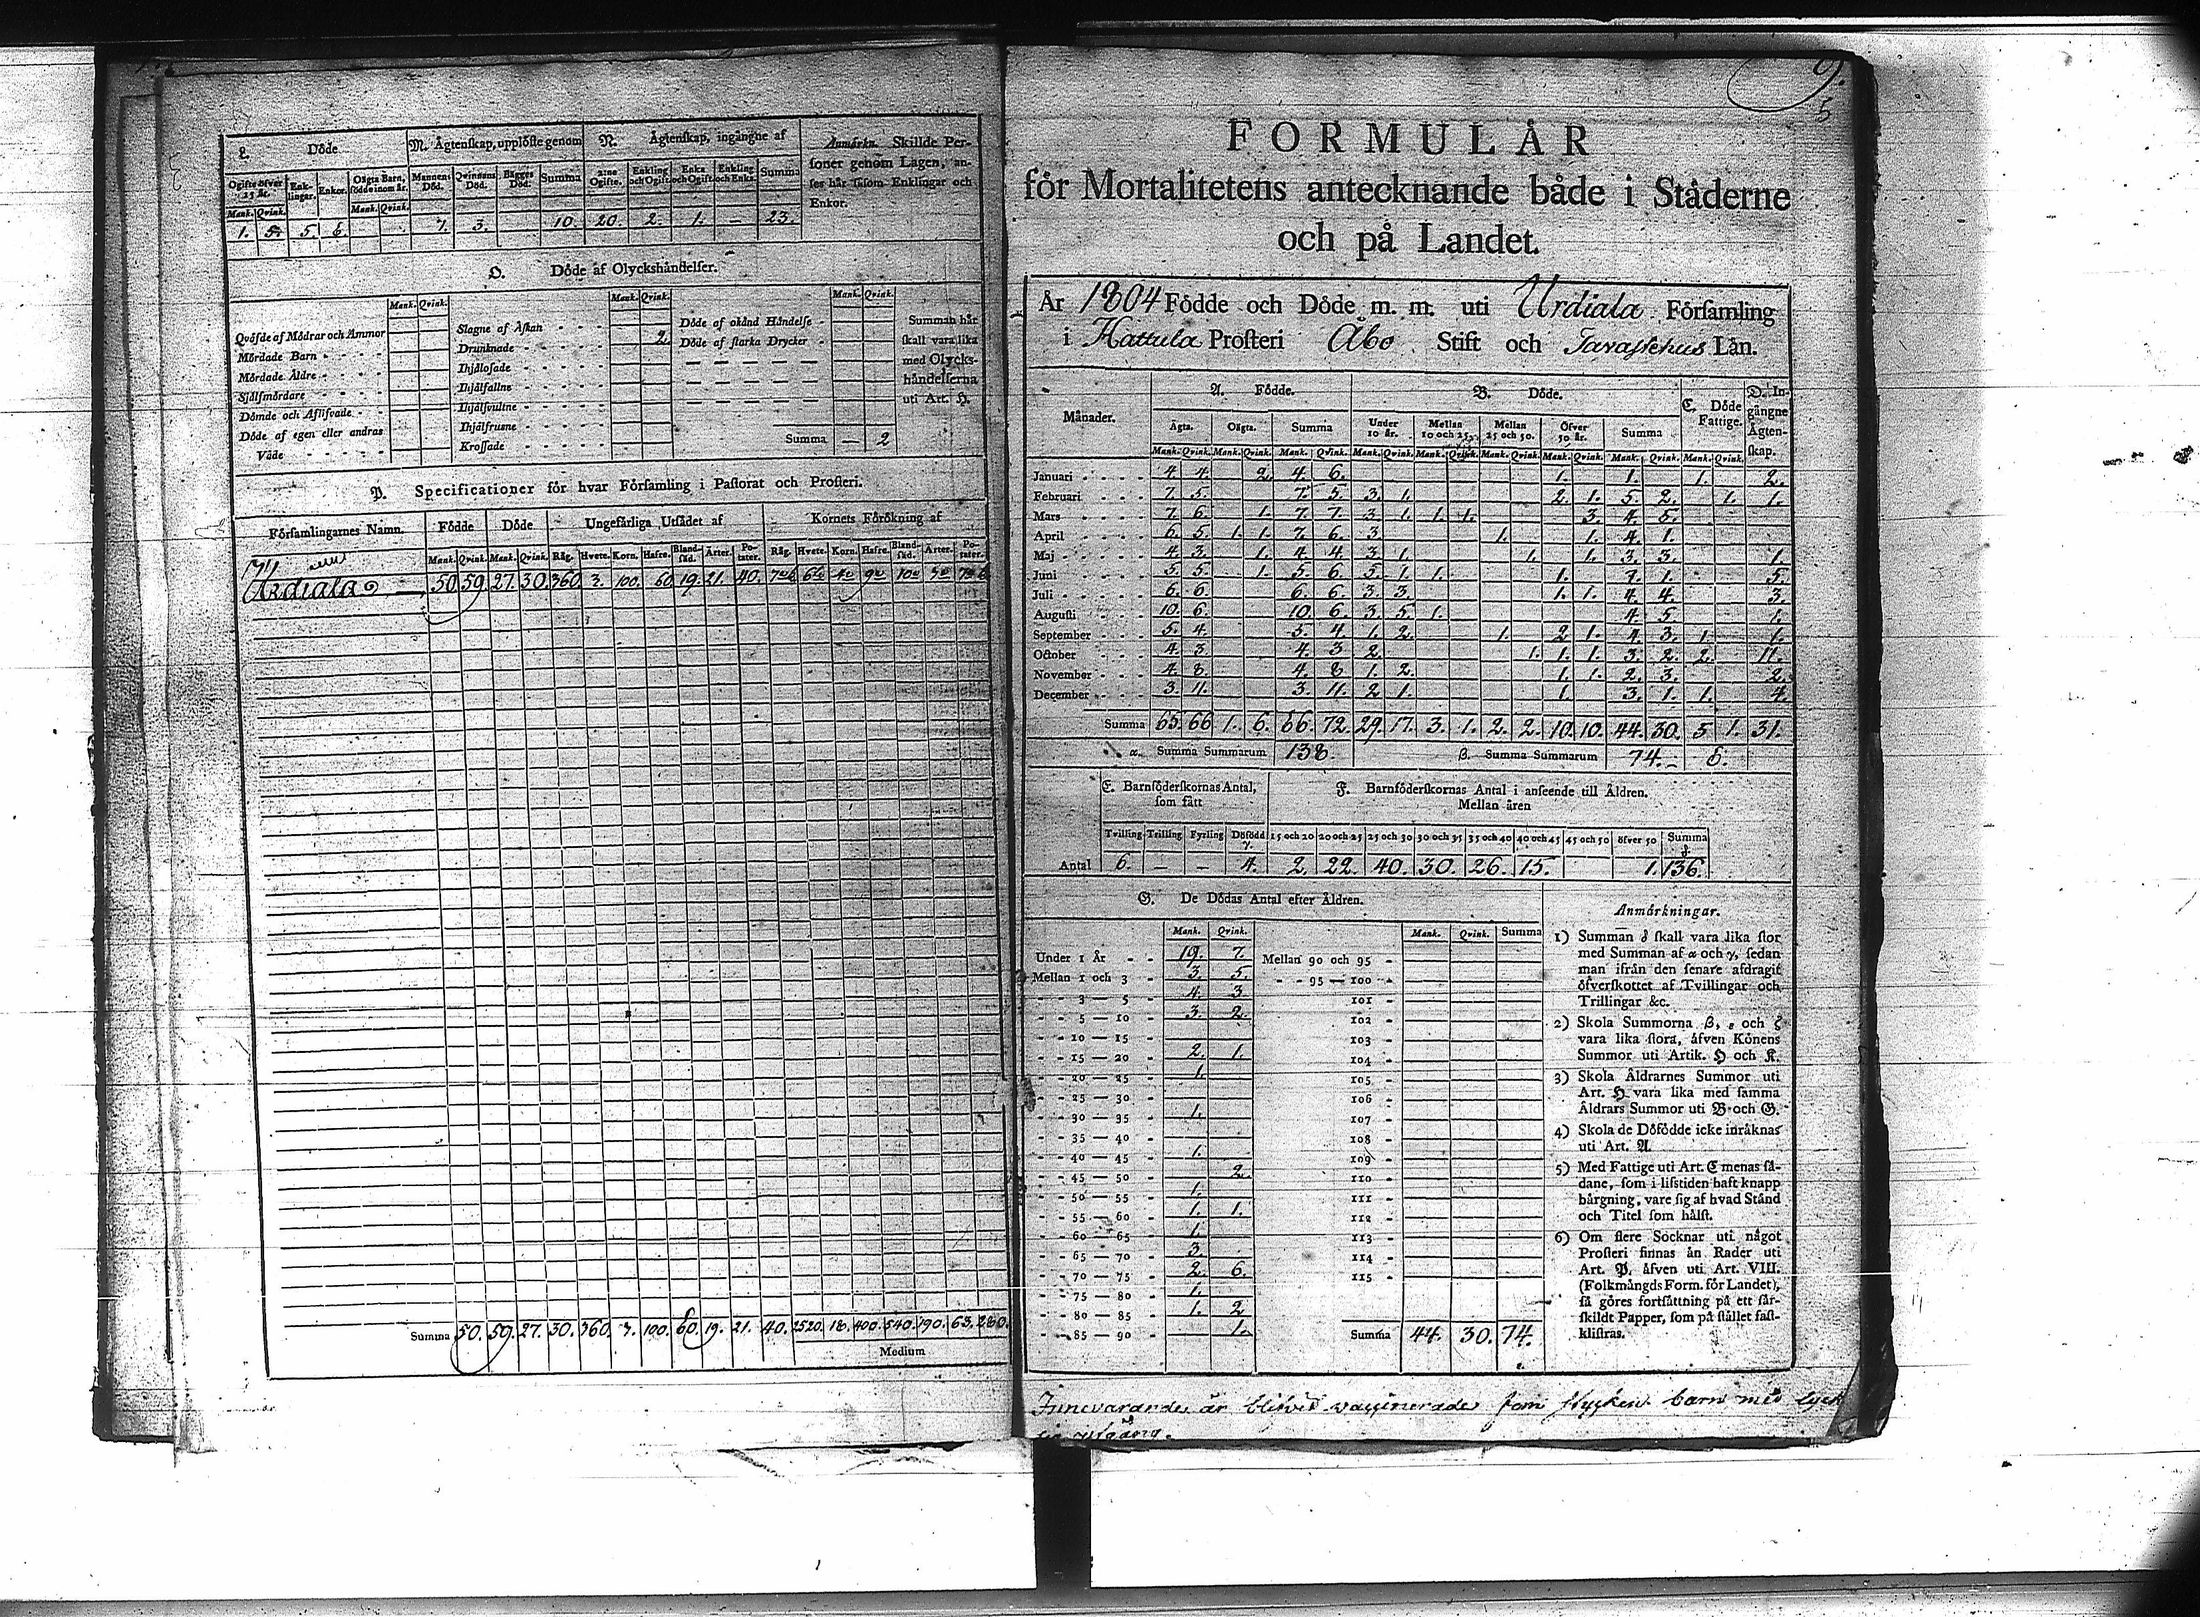 L. Döde.
M. Ägtenskap, upplöste genom
N. Ägtenskap, ingångne af
Anmärkn. Skillde Personer genom Lagen, anses här såsom Enklingar och Enkor.
Ogifte öfver 25 år. Enklingar. Enkor. Oägta Barn, födde inom år. Mannens Död. Qvinnans Död. Bägges Död. Summa 2:ne Ogifte. Enkling och Ogift. Enka och Ogift. Enkling och Enka. Summa
Mank. Qvink. Mank. Qvink.
1. 5. 5. 6. 7. 3. 10. 20. 2. 1. — 23.
O. Döde af Olyckshändelser.
Mank. Qvink. Mank. Qvink. Mank. Qvink.
Qväfde af Mödrar och Ammor
Mördade Barn
Mördade Äldre
Sjelfmördare
Dömde och Aflifvade
Döde af egen eller andras Våde
Slagne af Åskan
Drunknade 2
Ihjälosade
Ihjälfallne
Ihjälsvultne
Ihjälfrusne
Krossade
Döde af okänd Händelse
Döde af starka Drycker
Summa — 2
Summan här skall vara lika med Olyckshändelserna uti Art. H.
P. Specificationer för hvar Församling i Pastorat och Prosteri.
Församlingarnes Namn. Födde Döde Ungefärliga Utsädet af Kornets Förökning af
Mank. Qvink. Mank. Qvink. Råg. Hvete. Korn. Hafre. Blandsäd. Ärter. Potäter. Råg. Hvete. Korn. Hafre. Blandsd. Ärter. Potäter.
Urdiala 50. 59. 27. 30. 360. 3. 100. 60. 19. 21. 40.
Summa 50. 59. 27. 30. 360. 3. 100. 60. 19. 21. 40. 2520. 18. 400. 540. 190. 63. 280.
Medium
9.
5
FORMULÄR
för Mortalitetens antecknande både i Städerne
och på Landet.
År 1804 Födde och Döde m. m. uti Urdiala Församling
i Hattula Prosteri Åbo Stift och Tavastehus Län.
Månader. A. Födde. B. Döde. C. Döde Fattige. D. Ingångne Ägtenskap.
Ägta. Oägta. Summa Under 10 år. Mellan 10 och 25. Mellan 25 och 50. Öfver 50 år. Summa
Mank. Qvink. Mank. Qvink. Mank. Qvink. Mank. Qvink. Mank. Qvink. Mank. Qvink. Mank. Qvink. Mank. Qvink. Mank. Qvink.
Januari 4. 4. 2. 4. 6. 1. 1. 1. 2.
Februari 7. 5. 7. 5. 3. 1. 2. 1. 5. 2. 1. 1.
Mars 7. 6. 1. 7. 7. 3. 1. 1. 1. 3. 4. 5.
April 6. 5. 1. 1. 7. 6. 3. 1. 1. 4. 1.
Maj 4. 3. 1. 4. 4. 3. 1. 1. 1. 3. 3. 1.
Juni 5. 5. 1. 5. 6. 5. 1. 1. 1. 7. 1. 5.
Juli 6. 6. 6. 6. 3. 3. 1. 1. 4. 4. 3.
Augusti 10. 6. 10. 6. 3. 5. 1. 4. 5. 1.
September 5. 4. 5. 4. 1. 2. 1. 2. 1. 4. 3. 1. 1.
October 4. 3. 4. 3 2. 1. 1. 1. 3. 2. 2. 11.
November 4. 8. 4. 8 1. 2. 1. 1. 2. 3. 2.
December 3. 11. 3. 11. 2. 1. 1. 3. 1. 1. 4.
Summa 65. 66 1. 6. 66. 72. 29. 17. 3. 1. 2. 2. 10. 10. 44. 30. 5 1. 31.
α. Summa Summarum 138. β. Summa Summarum 74. 6.
E. Barnföderskornas Antal, som fått
F. Barnföderskornas Antal i anseende till Åldren. Mellan åren
Tvilling Trilling Fyrling Dödfödd γ. 15 och 20 20 och 25 25 och 30 30 och 35 35 och 40 40 och 45 45 och 50 öfver 50 Summa δ
Antal 6. — — 4. 2. 22. 40. 30. 26. 15. 1. 136.
G. De Dödas Antal efter Åldren.
Mank. Qvink. Mank. Qvink. Summa
Under 1 År 19. 7.
Mellan 1 och 3 3. 5.
3 — 5 4. 3
5 — 10 3. 2.
10 — 15
15 — 20 2. 1.
20 — 25 1.
25 — 30
30 — 35 1.
35 — 40
40 — 45 1.
45 — 50 2.
50 — 55 1.
55 — 60 1. 1.
60 — 65 1.
65 — 70 3.
70 — 75 2. 6.
75 — 80 1.
80 — 85 1. 2
85 — 90 1.
Mellan 90 och 95
95 — 100
101
102
103
104
105
106
107
108
109
110
111
112
113
114
115
Summa 44. 30. 74.
Anmärkningar.
1) Summan δ skall vara lika stor
med Summan af α och γ, sedan
man ifrån den senare afdragit
öfverskottet af Tvillingar och
Trillingar &c.
2) Skola Summorna β, ε och ζ
vara lika stora, äfven Könens
Summor uti Artik. H och K.
3) Skola Åldrarnes Summor uti
Art. H vara lika med samma
Åldrars Summor uti B och G.
4) Skola de Dödfödde icke inräknas
uti Art. A.
5) Med Fattige uti Art. C menas sådane,
som i lifstiden haft knapp
bärgning, vare sig af hvad Stånd
och Titel som hälst.
6) Om flere Socknar uti något
Prosteri finnas än Rader uti
Art. P, äfven uti Art. VIII.
(Folkmängds Form. för Landet),
så göres fortsättning på ett särskildt
Papper, som på stället fastklistras.
Innevarande år blifvit vaccinerade fem stycken barn med lyck